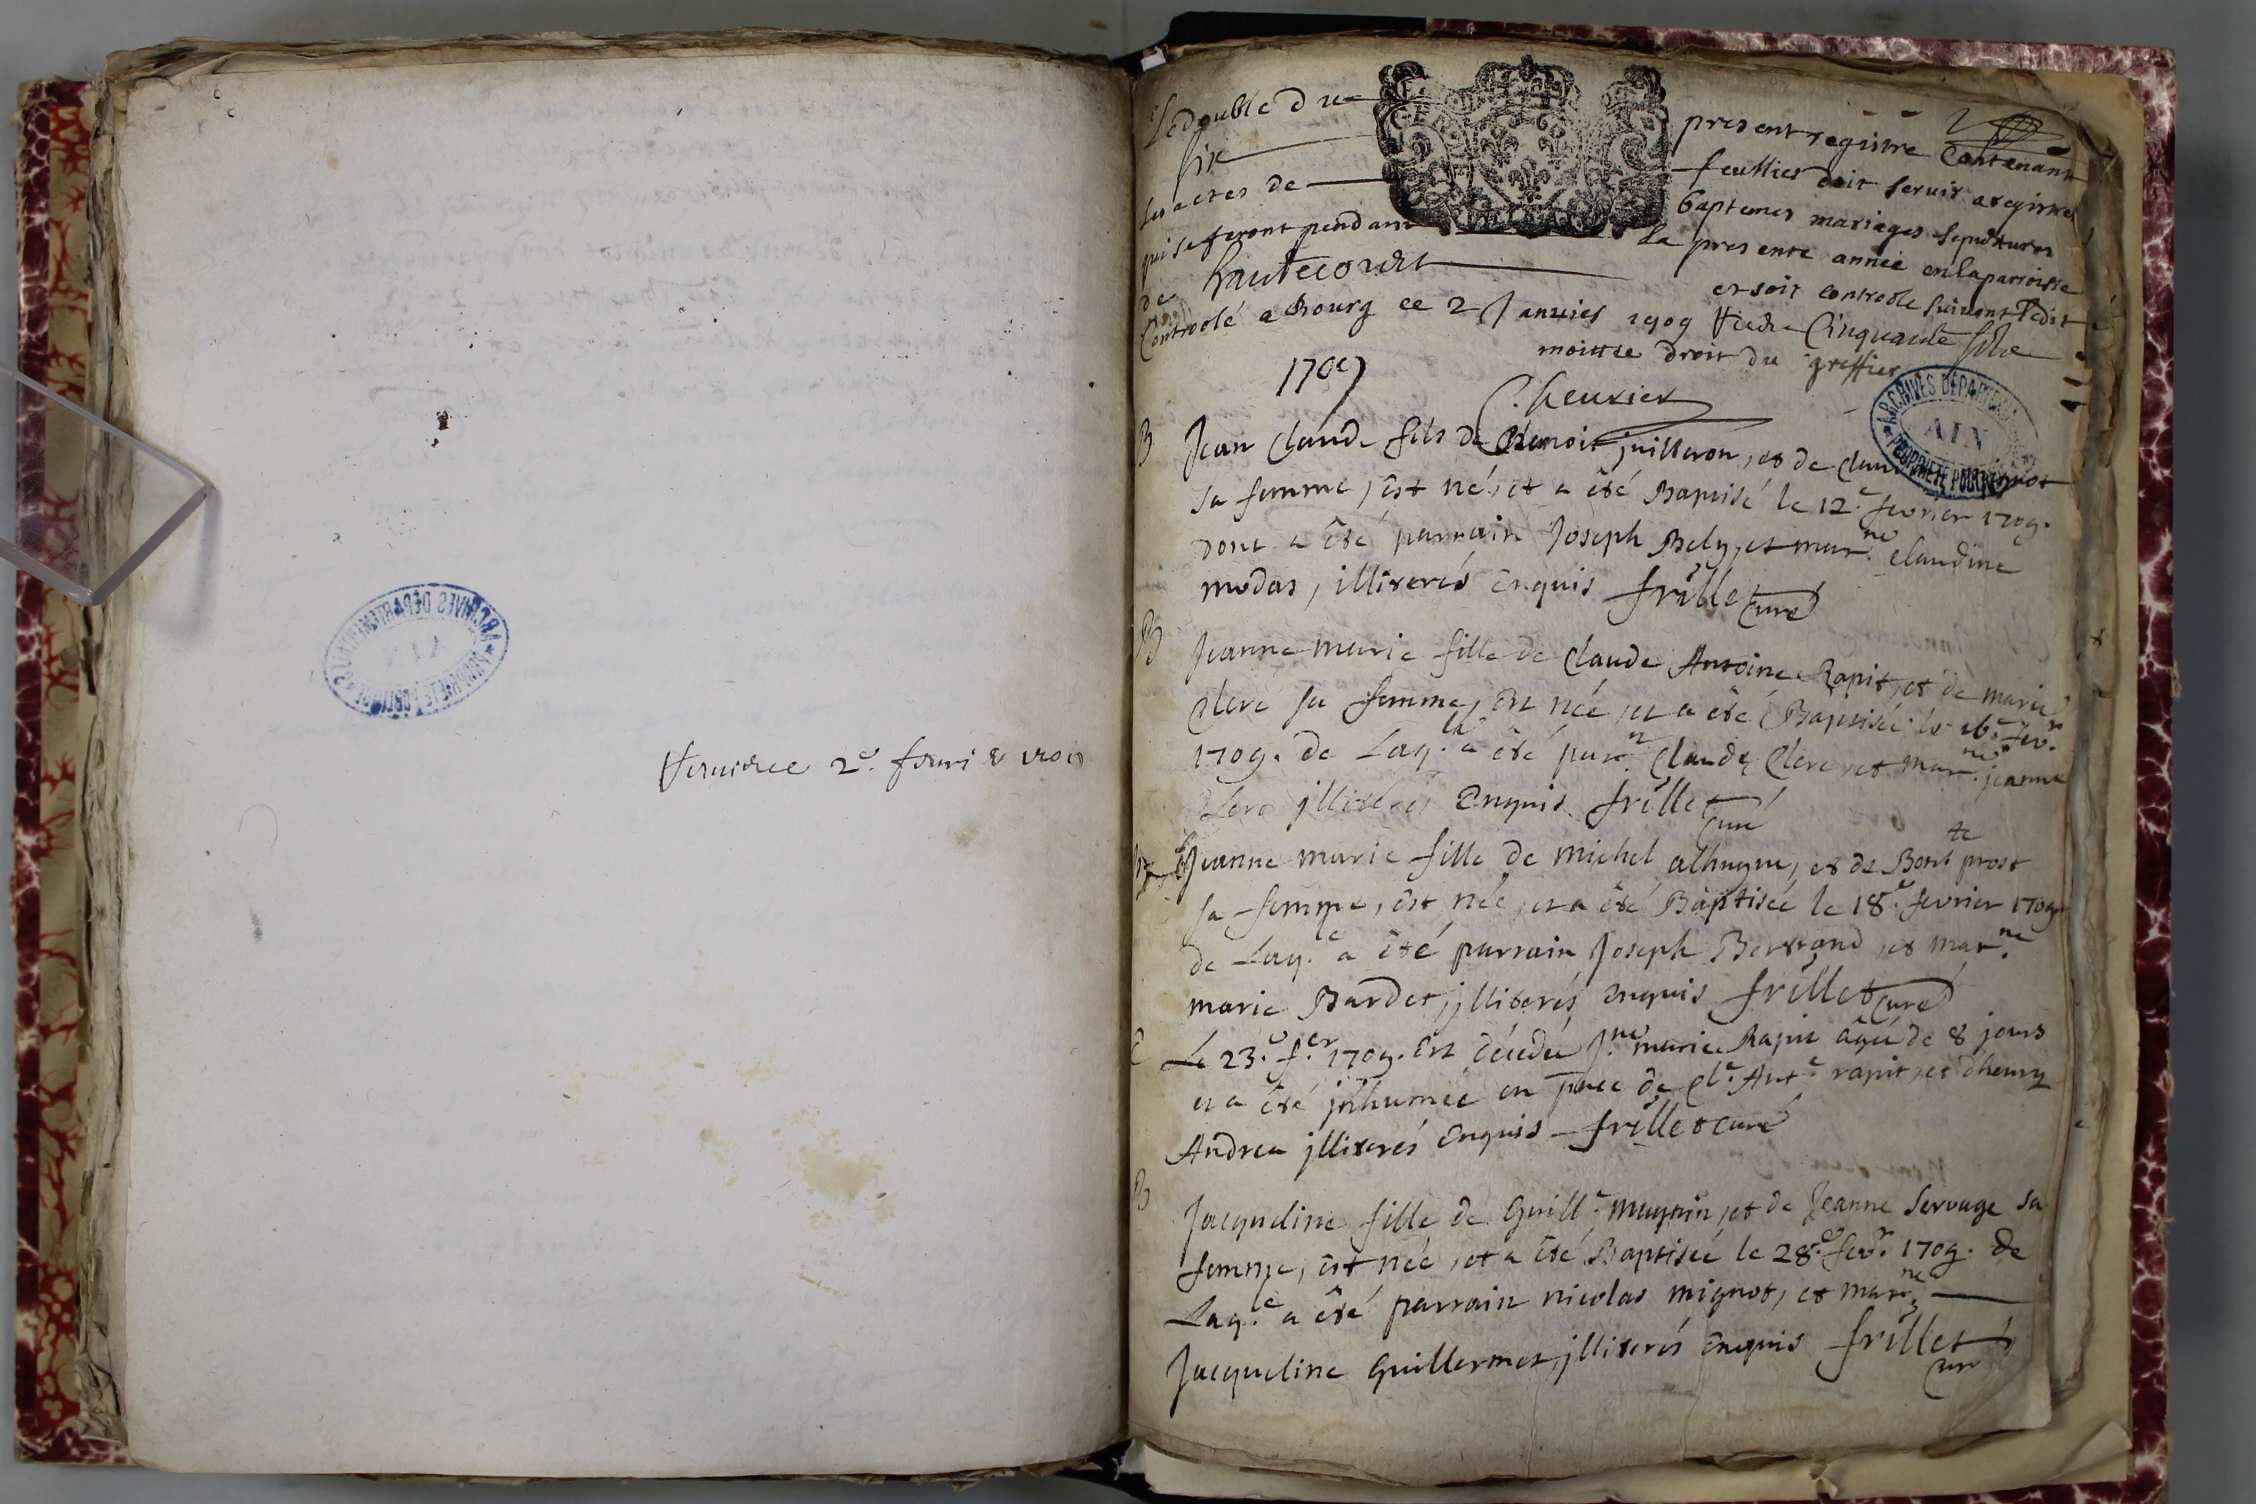 Le double du present registre contenant
six feullies doit servir a registrer
les actes de baptemes mariages sepultures
qui se feront pendant la presente année en la parroisse
de hautecourt et soit controole suivant ledit
Controolé a Bourg ce 2 Janvier 1709
moittie droit du greffier
1709
Chevrier
ARCHIVES DEPARTEMENTALES
AIN
PROPRIETE PUBLIQUE
B Jean Claude fils de Benoit juilleron, et de
sa femme, est né, et a été Baptisé le 12.e fevrier 1709.
dont a été parrain Joseph Bely, et mar.ne claudine
modas, illiterés Enquis frillet curé
B Jeanne marie fille de Claude Antoine Rapit, et de marie
Clerc sa femme, Est née, et a été Baptisée le 16.e fev.r
1709. de Laq.le a été parr.n Claude Clerc et mar.ne jeanne
Clerc illiterés Enquis frillet curé
Jeanne marie fille de michel et de Bon.te prost
sa femme, est née, et a été Baptisée le 18.e fevrier 1709
de Laq.le a été parrain Joseph Bertrand, et mar.ne
marie Bardet, jlliterés enquis frillet curé
Le 23.e f.er 1709. est décédée J.ne marie Rapit agée de 8 jours
et a été jnhumée en p̄nce de Cl.e Ant.e rapit, et
Andrea jlliterés Enquis frillet curé
B Jacqueline fille de Guill.e et de Jeanne Servage sa
femme, est née, et a été Baptisée le 28.e fev.r 1709. de
Laq.le a été parrain nicolas mignot, et mar.ne
Jacqueline Guillermet, jlliterés Enquis frillet curé